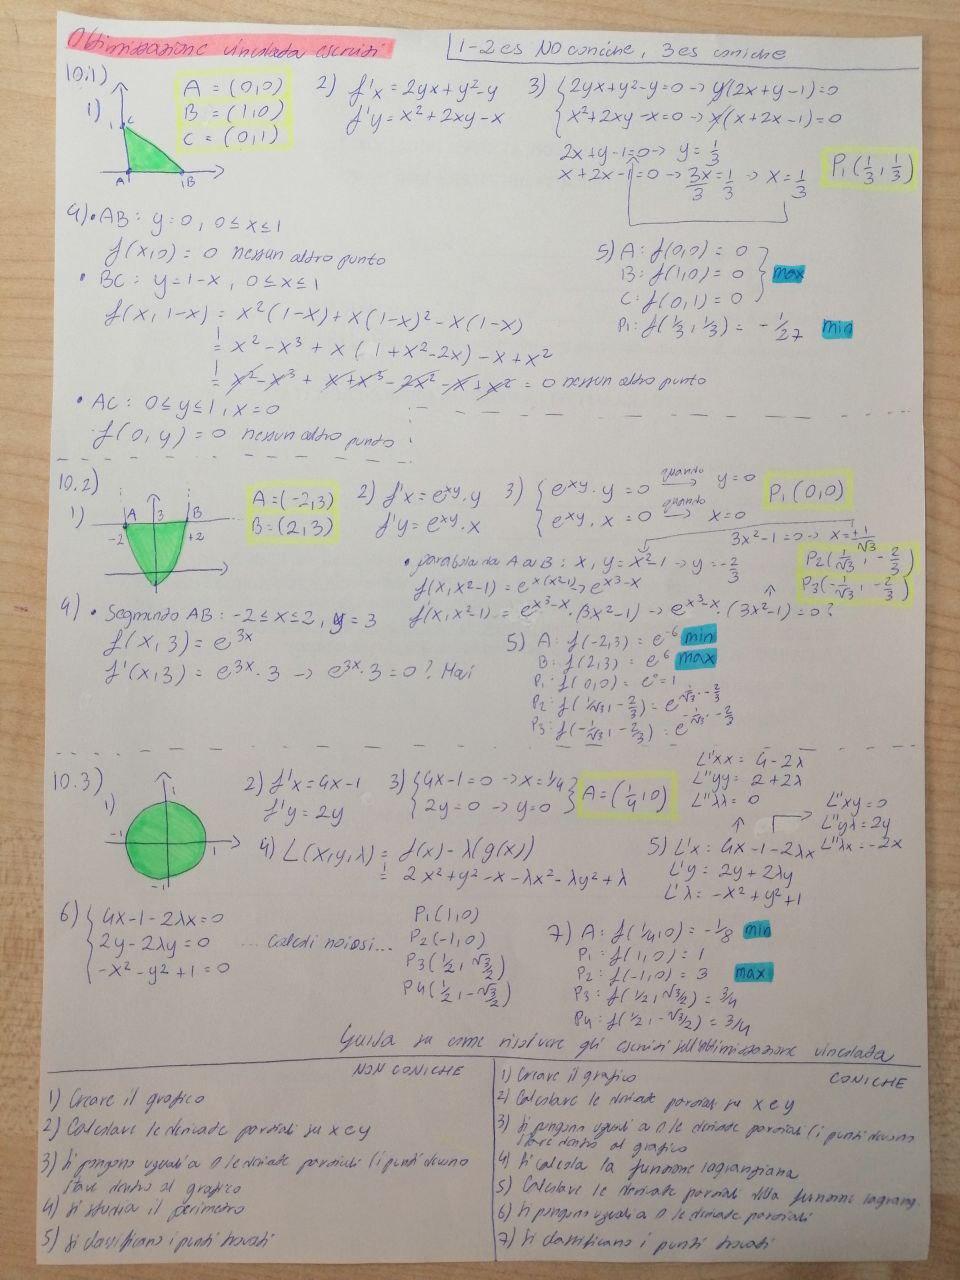 Ottimizzazione vincolata esercizi
1-2 es NO coniche, 3 es coniche
10.1)
1)
C
A
B
1
A = (0,0)
B = (1,0)
C = (0,1)
2) f'x = 2yx + y² - y
f'y = x² + 2xy - x
3) { 2yx + y² - y = 0 → y(2x + y - 1) = 0
x² + 2xy - x = 0 → x(x + 2x - 1) = 0
2x + y - 1 = 0 → y = 1/3
x + 2x - 1 = 0 → 3x/3 = 1/3 → x = 1/3
P₁ (1/3, 1/3)
4) • AB: y = 0, 0 ≤ x ≤ 1
f(x,0) = 0 nessun altro punto
• BC: y = 1-x, 0 ≤ x ≤ 1
f(x, 1-x) = x²(1-x) + x(1-x)² - x(1-x)
= x² - x³ + x(1 + x² - 2x) - x + x²
= x² - x³ + x + x³ - 2x² - x + x² = 0 nessun altro punto
• AC: 0 ≤ y ≤ 1, x = 0
f(0, y) = 0 nessun altro punto
5) A: f(0,0) = 0
B: f(1,0) = 0 } max
C: f(0,1) = 0
P₁: f(1/3, 1/3) = -1/27 min
10.2)
1)
A
3
B
-2
+2
A = (-2,3)
B = (2,3)
2) f'x = e^xy · y
f'y = e^xy · x
3) { e^xy · y = 0 quando → y = 0
e^xy · x = 0 quando → x = 0
P₁ (0,0)
3x² - 1 = 0 → x = ±1/√3
• parabola da A a B: x, y = x² - 1 → y = -2/3
P₂(1/√3, -2/3)
P₃(-1/√3, -2/3)
f(x, x²-1) = e^x(x²-1) → e^x³-x
f'(x, x²-1) = e^x³-x · (3x²-1) → e^x³-x · (3x²-1) = 0?
4) • Segmento AB: -2 ≤ x ≤ 2, y = 3
f(x, 3) = e^3x
f'(x,3) = e^3x · 3 → e^3x · 3 = 0? Mai
5) A: f(-2,3) = e^-6 min
B: f(2,3) = e^6 max
P₁: f(0,0) = e^0 = 1
P₂: f(1/√3, -2/3) = e^1/√3 · -2/3
P₃: f(-1/√3, -2/3) = e^-1/√3 · -2/3
10.3)
1)
-1
1
-1
2) f'x = 4x - 1
f'y = 2y
3) { 4x - 1 = 0 → x = 1/4
2y = 0 → y = 0 }
A = (1/4, 0)
L''xx = 4 - 2λ
L''yy = 2 + 2λ
L''λλ = 0
L''xy = 0
L''yλ = 2y
L''λx = -2x
4) L(x,y,λ) = f(x) - λ(g(x))
= 2x² + y² - x - λx² - λy² + λ
5) L'x = 4x - 1 - 2λx
L'y = 2y + 2λy
L'λ = -x² + y² + 1
6) { 4x - 1 - 2λx = 0
2y - 2λy = 0
-x² - y² + 1 = 0
... calcoli noiosi...
P₁ (1,0)
P₂ (-1,0)
P₃ (1/2, √3/2)
P₄ (1/2, -√3/2)
7) A: f(1/4, 0) = -1/8 min
P₁: f(1,0) = 1
P₂: f(-1,0) = 3 max
P₃: f(1/2, √3/2) = 3/4
P₄: f(1/2, -√3/2) = 3/4
Guida su come risolvere gli esercizi sull'ottimizzazione vincolata
NON CONICHE
1) Creare il grafico
2) Calcolare le derivate parziali su x e y
3) Si pongono uguali a 0 le derivate parziali (i punti devono
stare dentro al grafico
4) Si studia il perimetro
5) Si classificano i punti trovati
CONICHE
1) Creare il grafico
2) Calcolare le derivate parziali su x e y
3) Si pongono uguali a 0 le derivate parziali (i punti devono
stare dentro al grafico
4) Si calcola la funzione lagrangiana
5) Calcolare le derivate parziali della funzione lagrang.
6) Si pongono uguali a 0 le derivate parziali
7) Si classificano i punti trovati